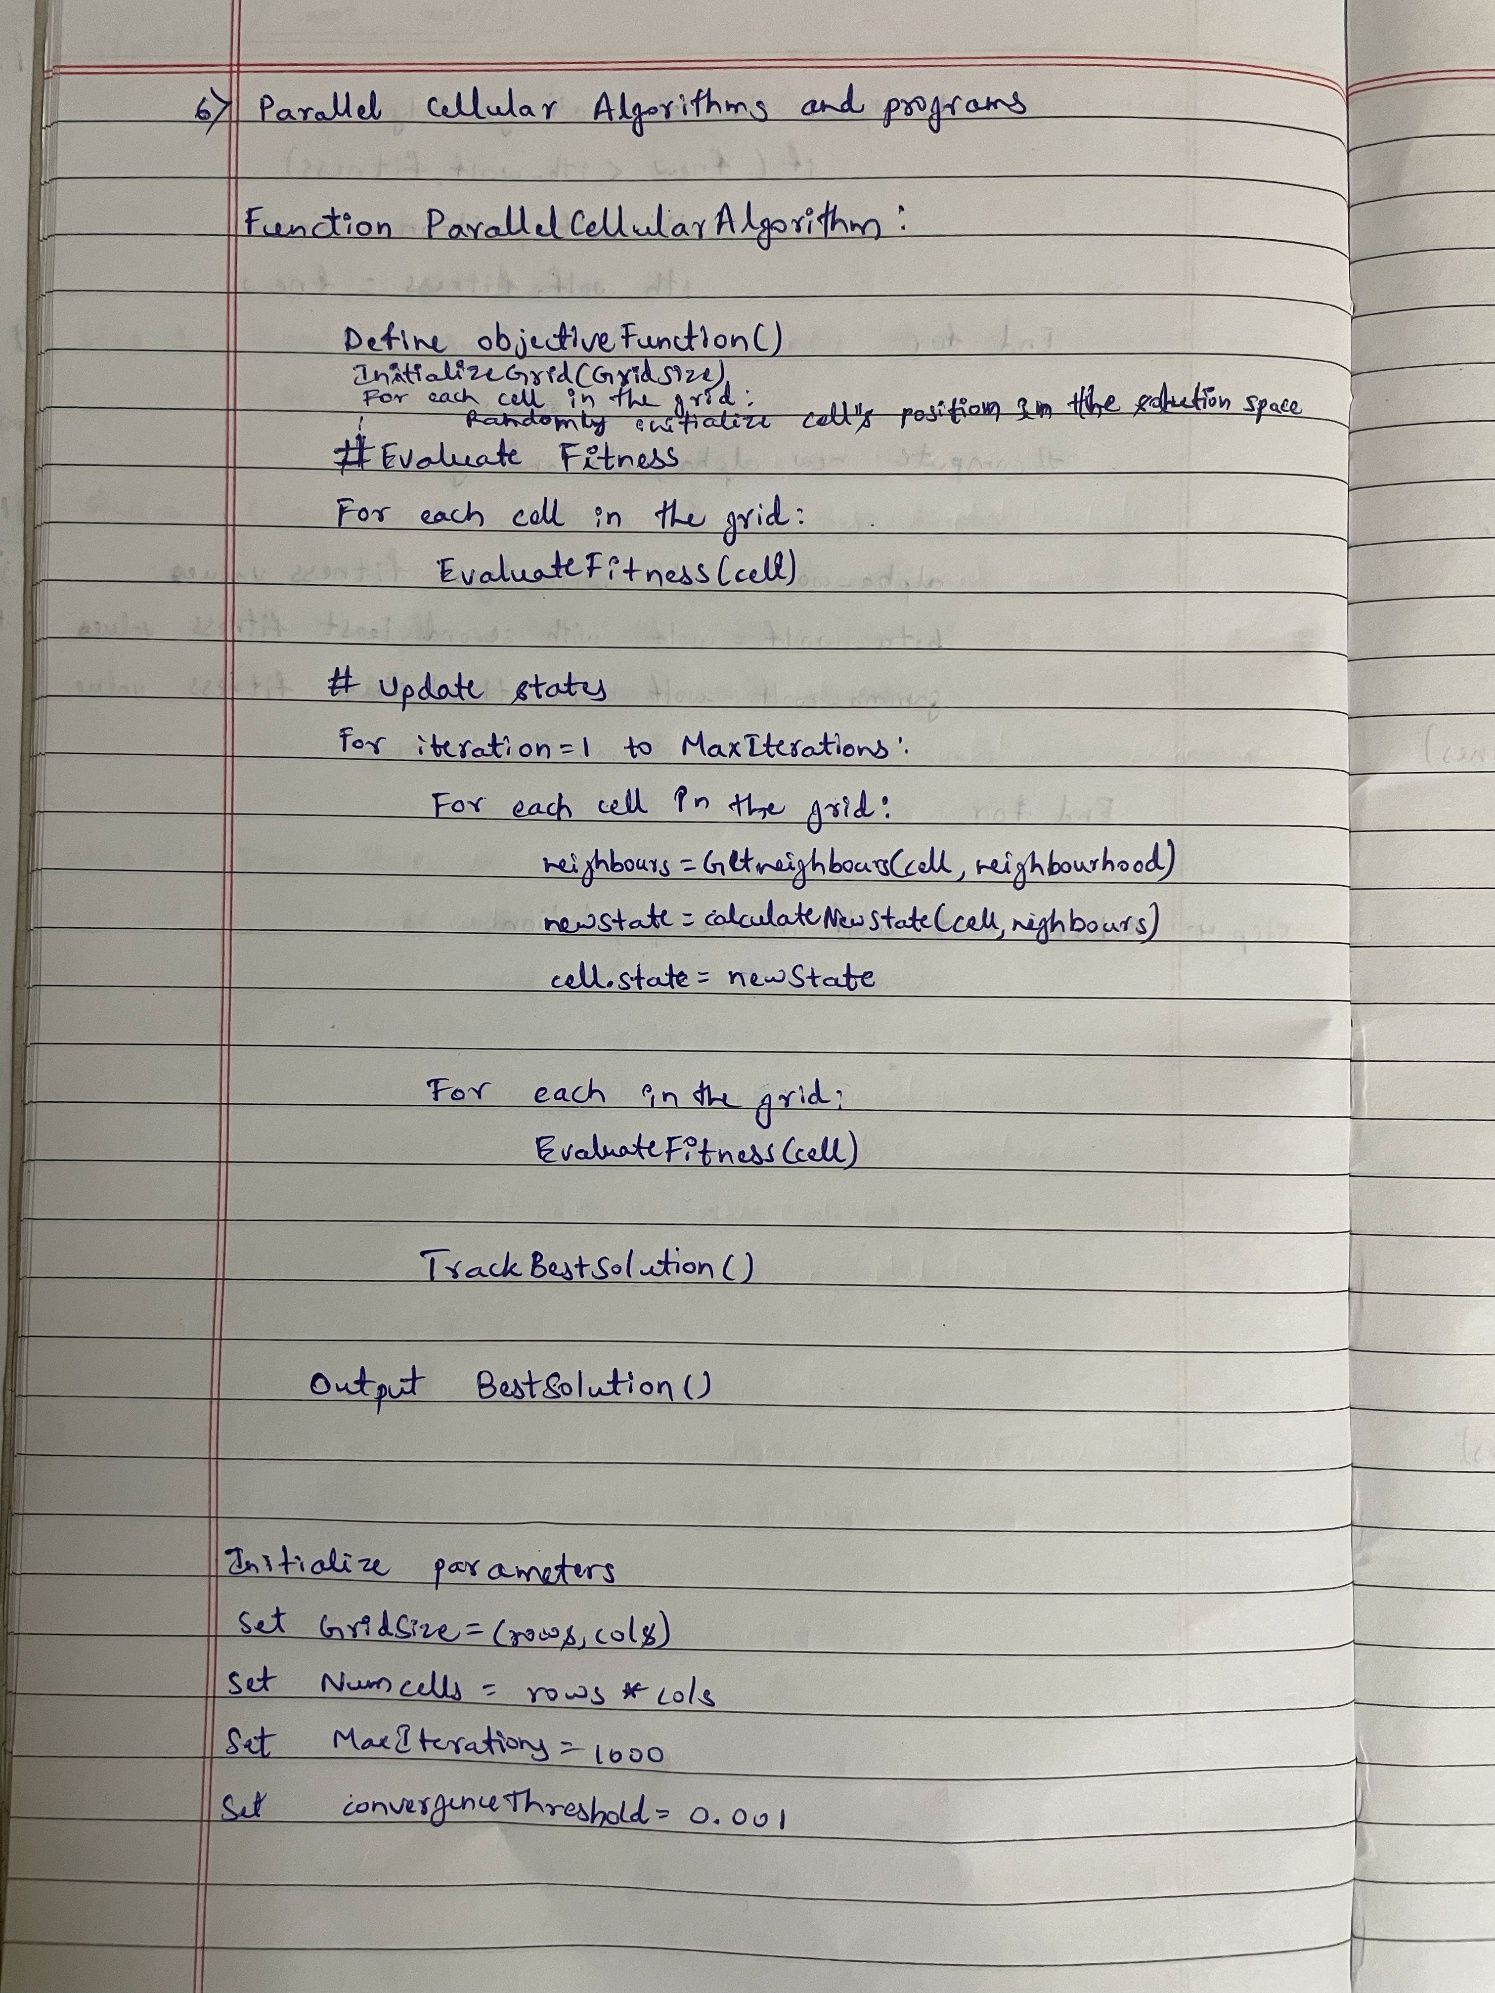 6) Parallel Cellular Algorithms and programs
Function ParallelCellularAlgorithm:
Define objectiveFunction()
InitializeGrid(Gridsize)
For each cell in the grid:
Randomly initialize cell's position in the solution space
# Evaluate Fitness
For each cell in the grid:
EvaluateFitness(cell)
# Update states
For iteration=1 to MaxIterations:
For each cell in the grid:
neighbours = Getneighbours(cell, neighbourhood)
newstate = calculateNewState(cell, nighbours)
cell.state = newState
For each in the grid:
EvaluateFitness(cell)
TrackBestSolution()
Output BestSolution()
Initialize parameters
Set GridSize = (rows, cols)
Set Numcells = rows * cols
Set MaxIterations = 1000
Set convergenceThreshold = 0.001